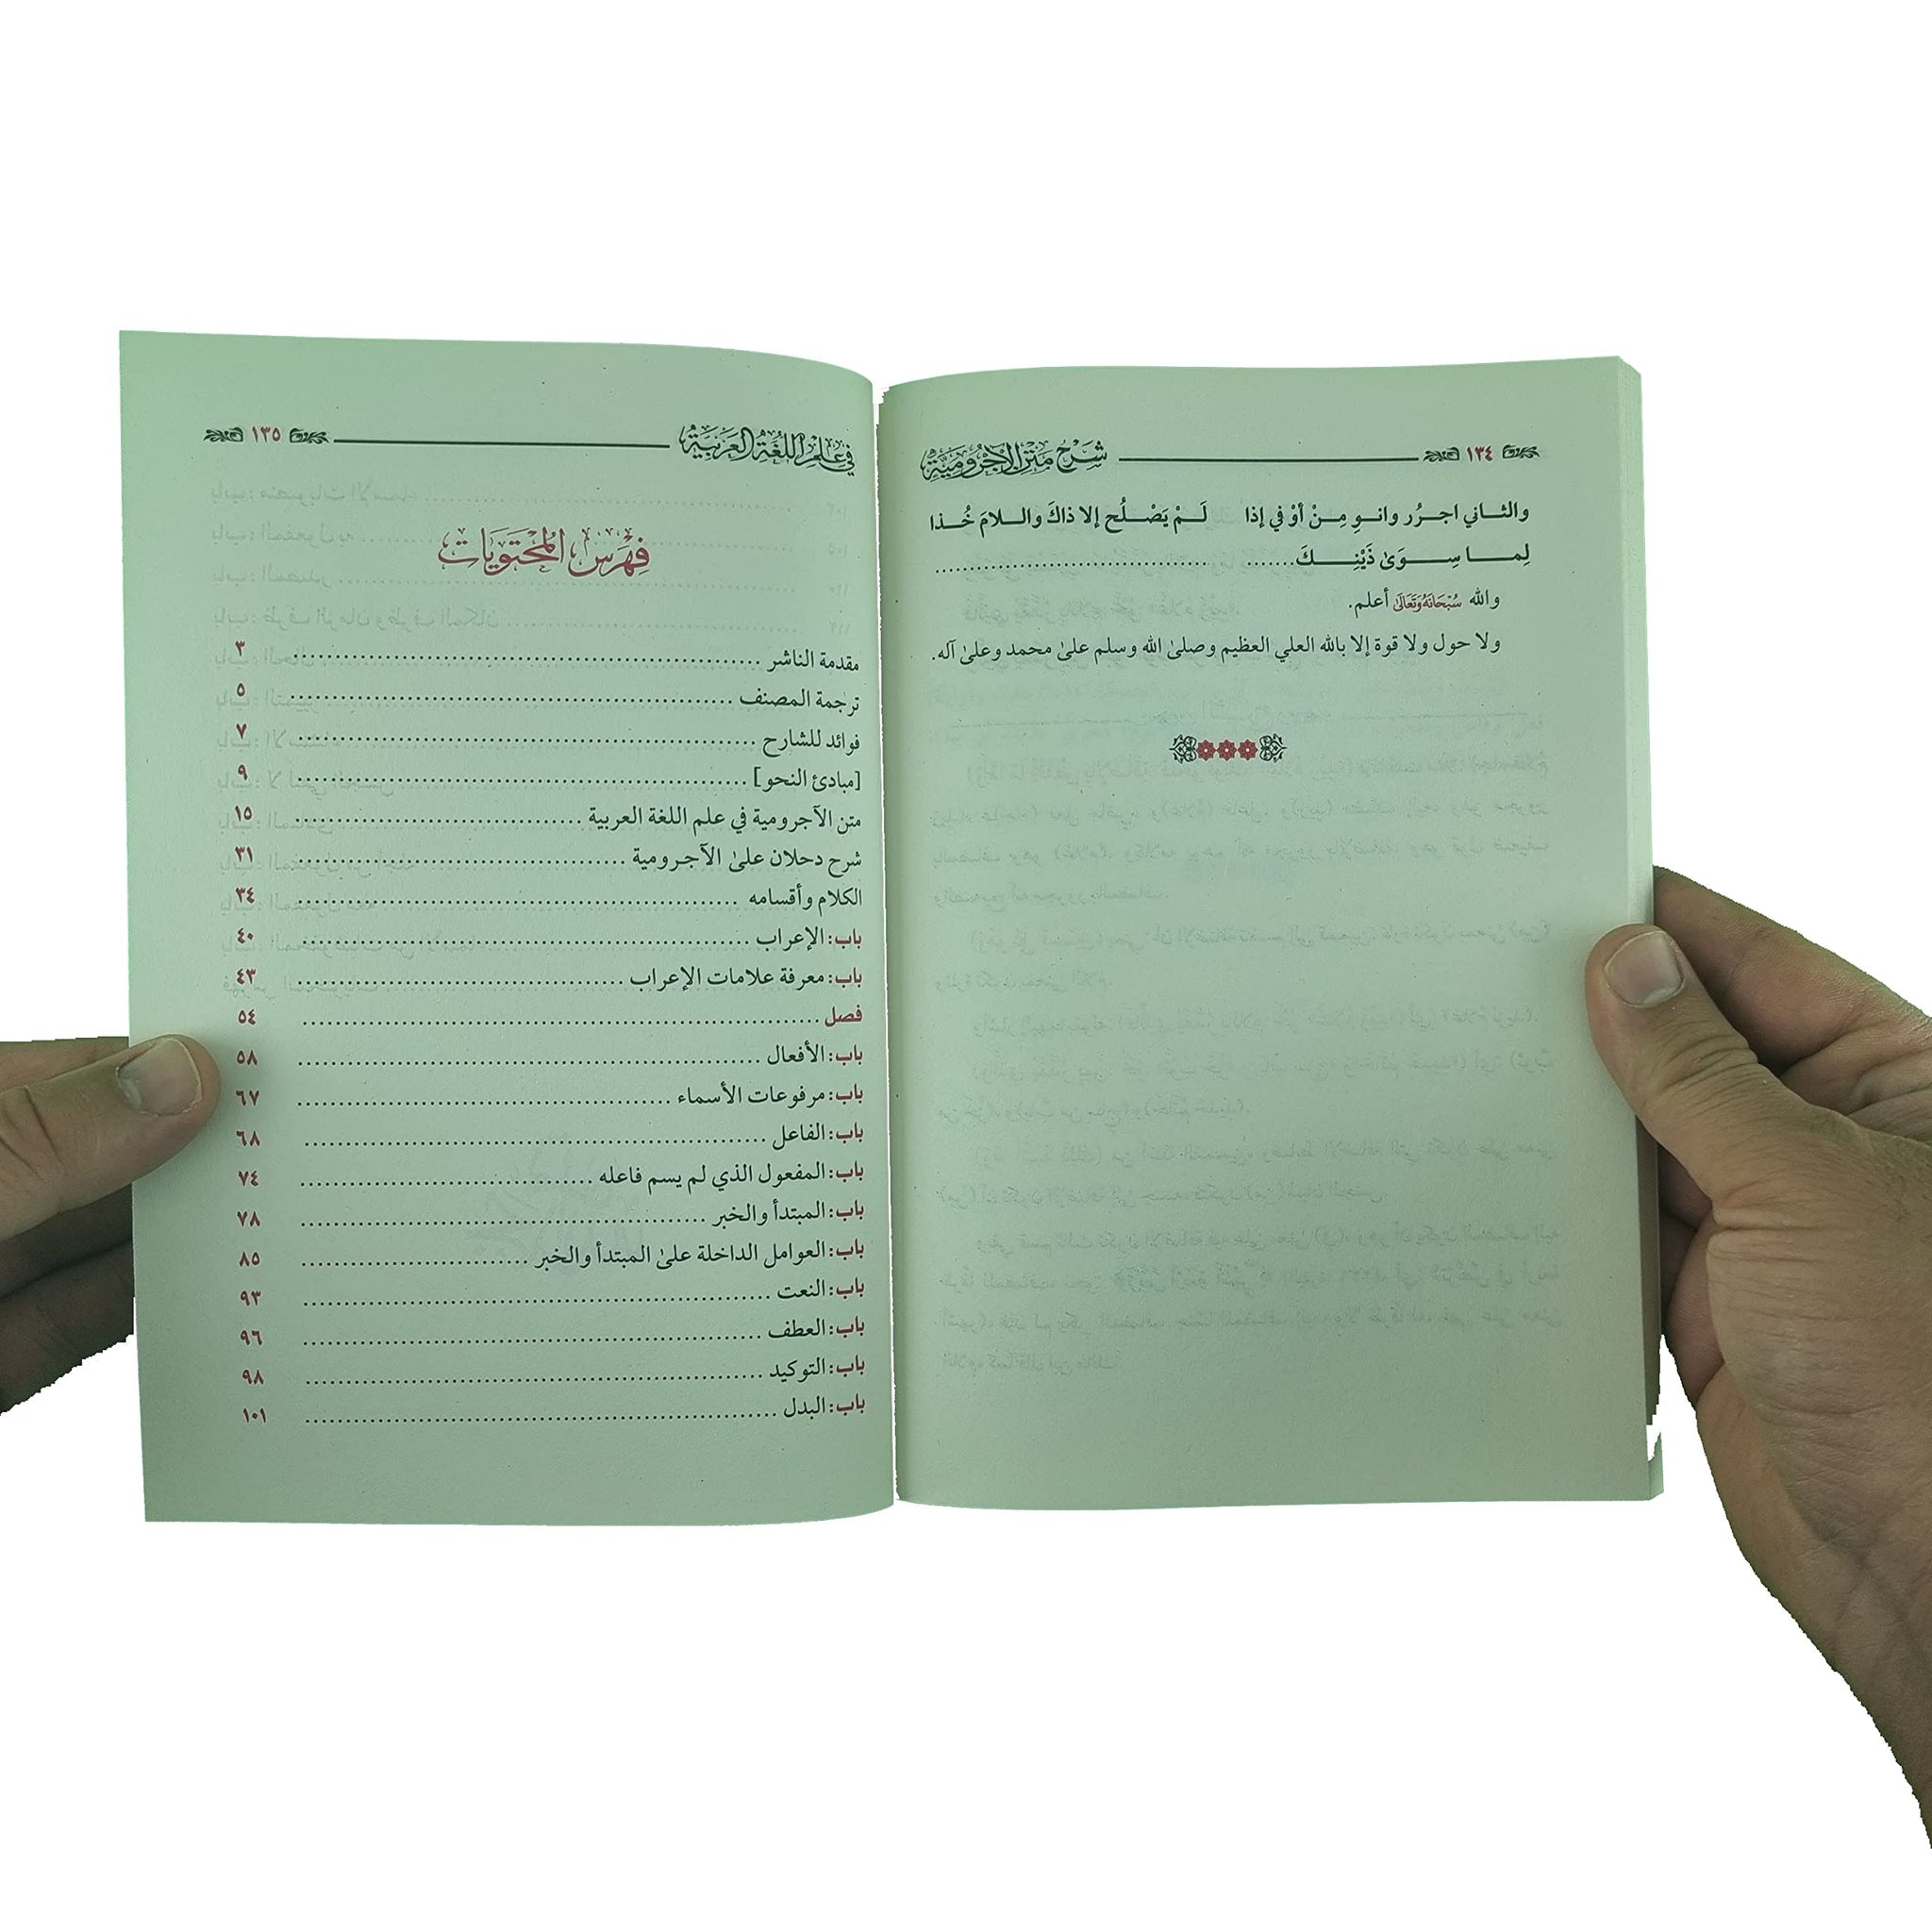 ١٣٤ شَرْحُ مَتْنِ الآجُرُّومِيَّة
والثـاني اجـرُر وانـوِ مِـنْ أوْ في إذا لَـمْ يَصْـلُح إلا ذاكَ والـلامَ خُـذا
لِمـا سِـوَىٰ ذَيْنِـكَ.......... ..........................................
والله سُبْحَانَهُ وَتَعَالَىٰ أعلم.
ولا حول ولا قوة إلا بالله العلي العظيم وصلىٰ الله وسلم علىٰ محمد وعلىٰ آله.
في علم اللغة العربية ١٣٥
فِهْرَسُ المُحْتَوَيَات
مقدمة الناشر .......... ٣
ترجمة المصنف .......... ٥
فوائد للشارح .......... ٧
[مبادئ النحو] .......... ٩
متن الآجرومية في علم اللغة العربية .......... ١٥
شرح دحلان علىٰ الآجرومية .......... ٣١
الكلام وأقسامه .......... ٣٤
باب: الإعراب .......... ٤٠
باب: معرفة علامات الإعراب .......... ٤٣
فصل .......... ٥٤
باب: الأفعال .......... ٥٨
باب: مرفوعات الأسماء .......... ٦٧
باب: الفاعل .......... ٦٨
باب: المفعول الذي لم يسم فاعله .......... ٧٤
باب: المبتدأ والخبر .......... ٧٨
باب: العوامل الداخلة علىٰ المبتدأ والخبر .......... ٨٥
باب: النعت .......... ٩٣
باب: العطف .......... ٩٦
باب: التوكيد .......... ٩٨
باب: البدل .......... ١٠١